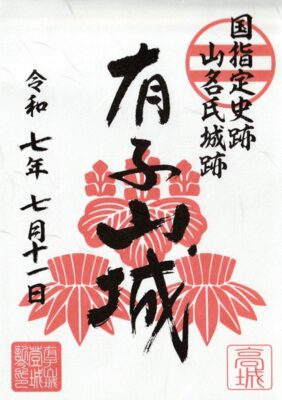 国指定史跡
山名氏城跡
有子山城
令和七年七月十一日
高城